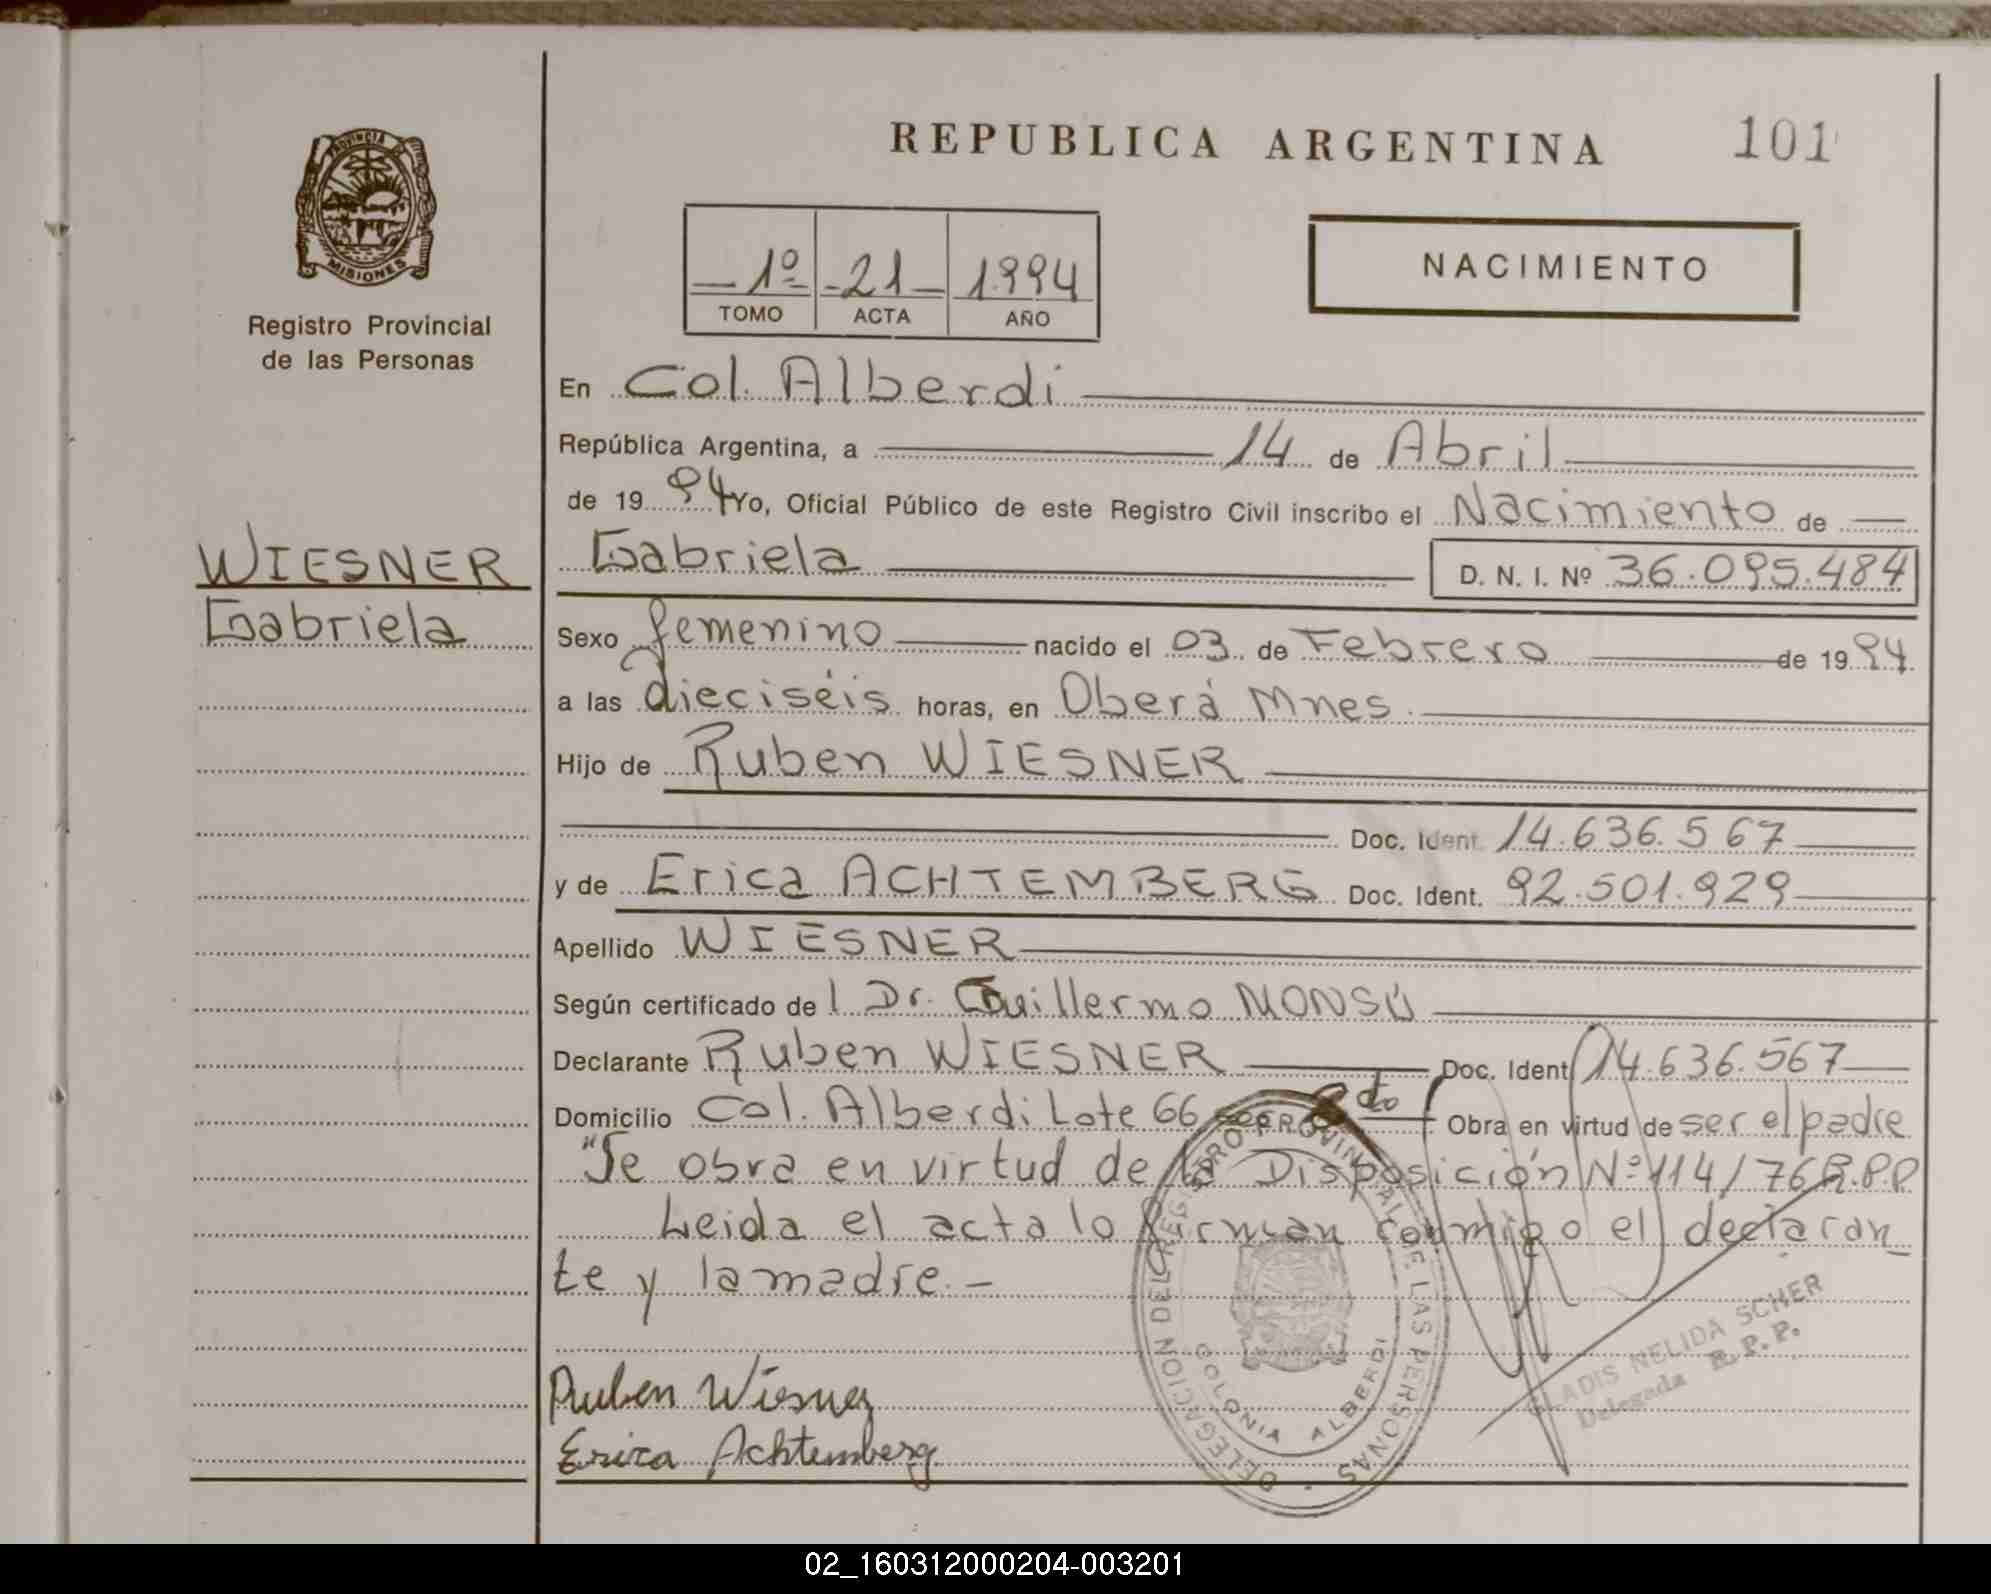 REPUBLICA ARGENTINA 101
PROVINCIA DE
MISIONES
Registro Provincial
de las Personas
1º 21 1994
TOMO ACTA AÑO
NACIMIENTO
En Col. Alberdi
República Argentina, a 14 de Abril
de 19 94 Yo, Oficial Público de este Registro Civil inscribo el Nacimiento de
WIESNER
Gabriela
Gabriela D. N. I. Nº 36.095.484
Sexo femenino nacido el 03 de Febrero de 19 94.
a las dieciséis horas, en Oberá Mnes.
Hijo de Ruben WIESNER
Doc. Ident. 14.636.567
y de Erica ACHTEMBERG Doc. Ident. 92.501.929
Apellido WIESNER
Según certificado de l Dr. Guillermo MONSÚ
Declarante Ruben WIESNER Doc. Ident. 14.636.567
Domicilio Col. Alberdi Lote 66 Obra en virtud de ser el padre
"Se obra en virtud de la Disposición Nº 114/76 R.P.P
Leida el acta lo firman conmigo el declaran_
te y la madre.-
DELEGACION DEL REGISTRO PROVINCIAL DE LAS PERSONAS
COLONIA ALBERDI
GLADIS NELIDA SCHER
Delegada R. P. P.
Ruben Wiesner
Erica Achtemberg
02_160312000204-003201